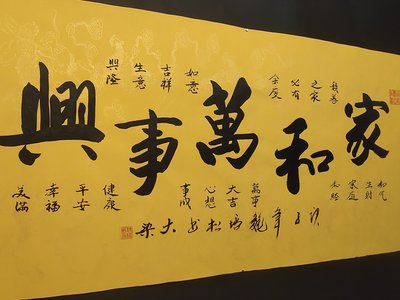 家和萬事興
積善
之家
必有
余庆
如意
吉祥
生意
興隆
和气
生財
家庭
和睦
萬事
大吉
心想
事成
健康
平安
幸福
美滿
子年
大梁